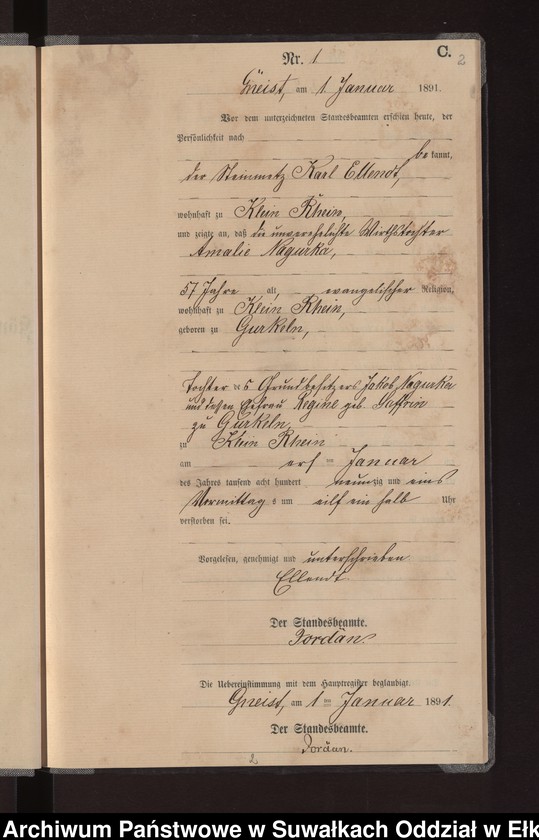 C. 2
Nr. 1
Gneist, am 1 Januar 1891.
Vor dem unterzeichneten Standesbeamten erschien heute, der
Persönlichkeit nach
be kannt,
der Steinmetz Karl Ellendt,
wohnhaft zu Klein Rhein,
und zeigte an, daß die unverehelichte Wirthstochter
Amalie Nagurka,
57 Jahre alt, evangelischer Religion,
wohnhaft zu Klein Rhein,
geboren zu Gurkeln,
Tochter des Grundbesitzers Jakob Nagurka
und dessen Ehefrau Regine geb.
zu Gurkeln
zu Klein Rhein
am ersten Januar
des Jahres tausend acht hundert neunzig und eins
Vormittags um eilf ein halb Uhr
verstorben sei.
Vorgelesen, genehmigt und unterschrieben
Ellendt.
Der Standesbeamte.
Jordan.
Die Uebereinstimmung mit dem Hauptregister beglaubigt.
Gneist, am 1 ten Januar 1891.
Der Standesbeamte.
Jordan.
2
Archiwum Państwowe w Suwałkach Oddział w Ełk